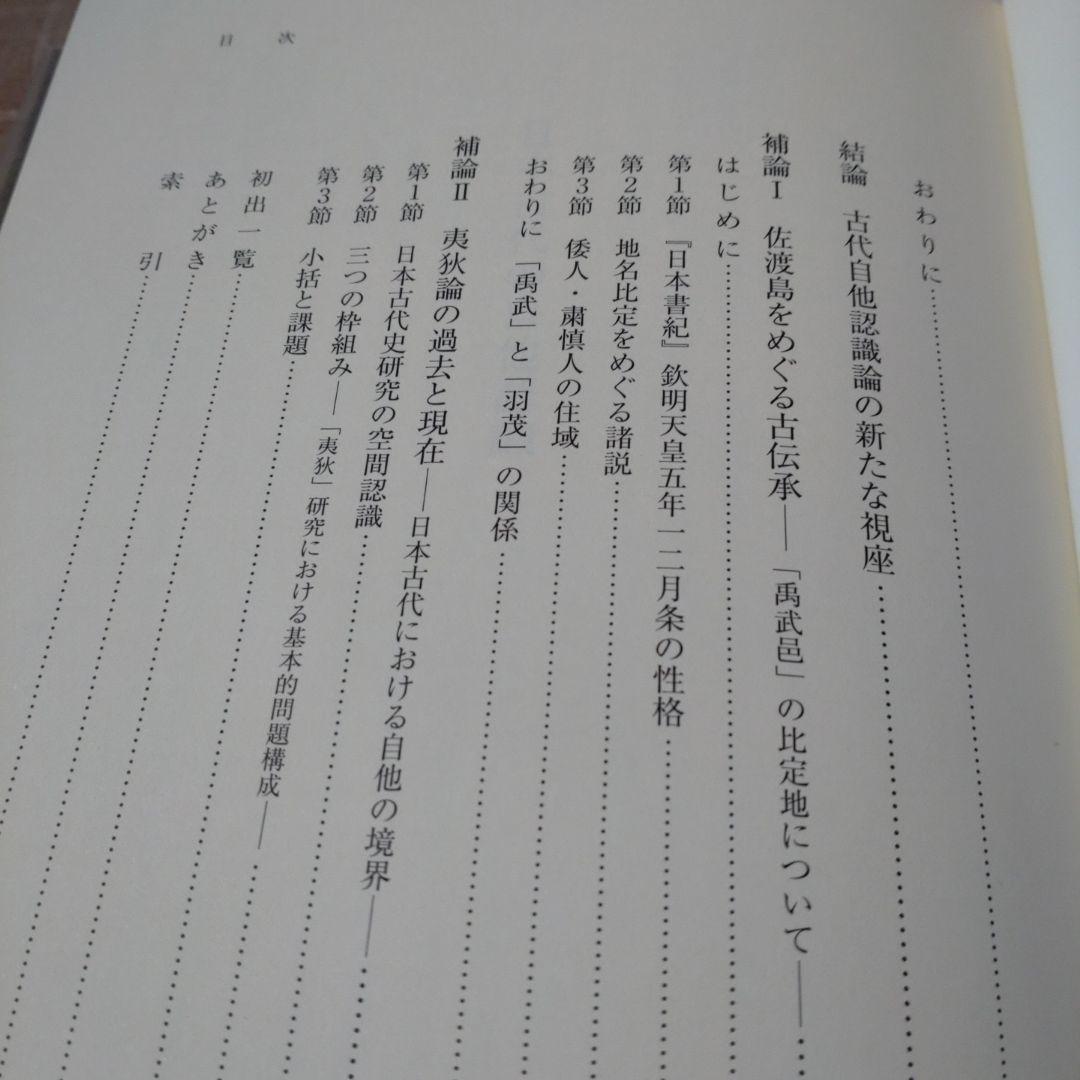 目次
おわりに
結論 古代自他認識論の新たな視座
補論Ⅰ 佐渡島をめぐる古伝承――「禹武邑」の比定地について――
はじめに
第1節 『日本書紀』欽明天皇五年一二月条の性格
第2節 地名比定をめぐる諸説
第3節 倭人・粛慎人の住域
おわりに 「禹武」と「羽茂」の関係
補論Ⅱ 夷狄論の過去と現在――日本古代における自他の境界――
第1節 日本古代史研究の空間認識
第2節 三つの枠組み――「夷狄」研究における基本的問題構成――
第3節 小括と課題
初出一覧
あとがき
索引